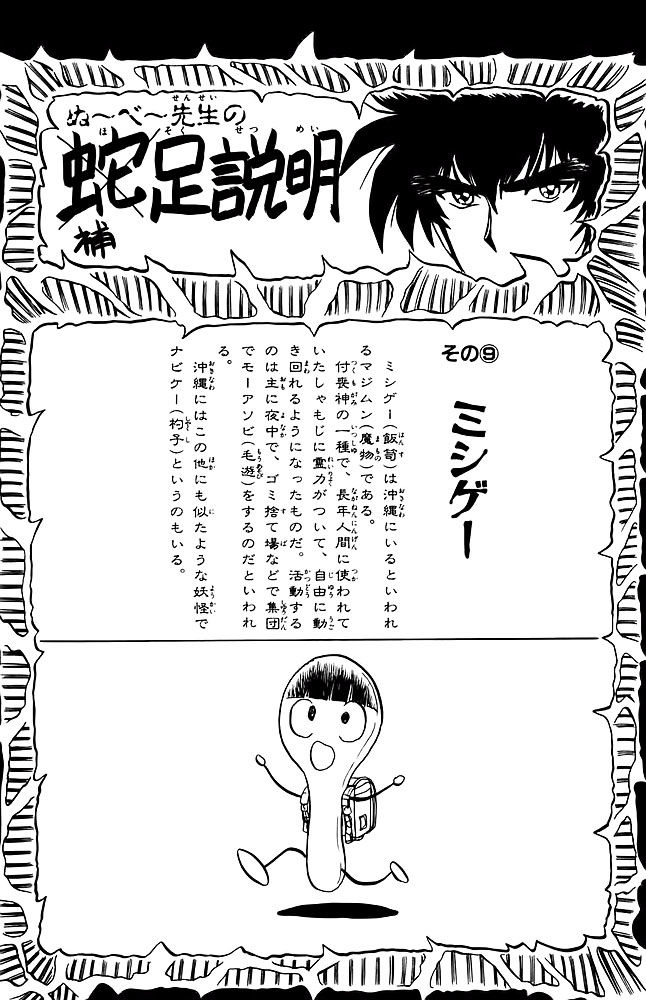 ぬ～べ～先生の
蛇足説明
補
その⑨
ミシゲー
ミシゲー(飯笥)は沖縄にいるといわれ
るマジムン(魔物)である。
付喪神の一種で、長年人間に使われて
いたしゃもじに霊力がついて、自由に動
き回れるようになったものだ。活動する
のは主に夜中で、ゴミ捨て場などで集団
でモーアソビ(毛遊)をするのだといわれ
る。
沖縄にはこの他にも似たような妖怪で
ナビゲー(杓子)というのもいる。